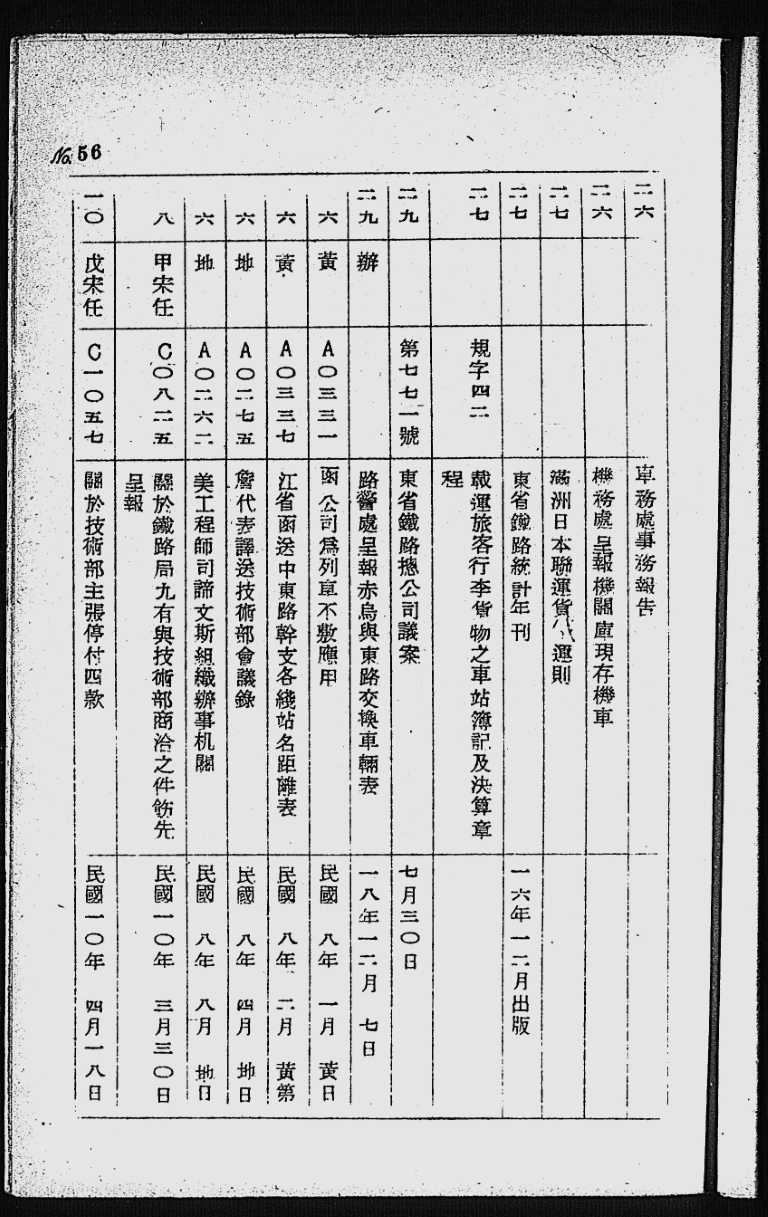 No. 56
二六 車務處事務報告
二六 機務處呈報機關庫現存機車
二七 滿洲日本聯運貨運則
二七 東省鐵路統計年刊 一六年一二月出版
二七 規字四二 載運旅客行李貨物之車站簿記及決算章
程
二九 第七七一號 東省鐵路總公司議案 七月三〇日
二九 辦 路警處呈報赤烏與東路交換車輛表 一八年一二月 七日
六 黃 A〇三三一 函公司為列車不敷應用 民國 八年 一月 黃日
六 黃 A〇三三七 江省函送中東路幹支各綫站名距離表 民國 八年 二月 黃第
六 地 A〇二七五 詹代表譯送技術部會議錄 民國 八年 四月 地日
六 地 A〇二六二 美工程師司諦文斯組織辦事机關 民國 八年 八月 地日
八 甲宋任 C〇八二五 關於鐵路局九有與技術部商洽之件飭先
呈報 民國一〇年 三月三〇日
一〇 戊宋任 C一〇五七 關於技術部主張停付四款 民國一〇年 四月一八日